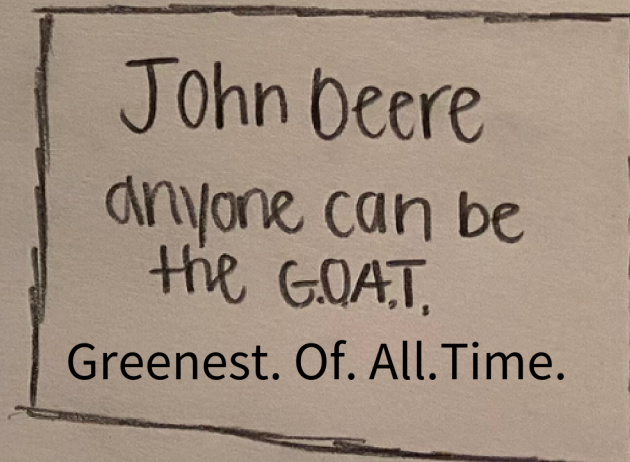 John Deere
anyone can be
the G.O.A.T.
Greenest. Of. All.Time.